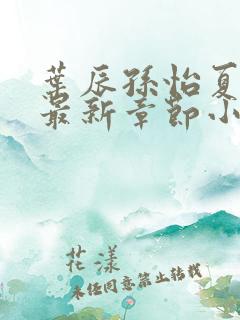 叶辰孙怡夏
最新章节小
花漾
未经同意禁止转载